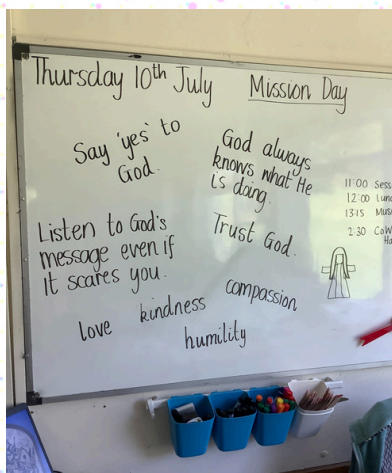 Thursday 10th July
Mission Day
Say 'yes' to
God.
God always
knows what He
is doing.
Listen to God's
message even if
it scares you.
Trust God.
love
kindness
compassion
humility
11:00
12:00
13:15
2:30